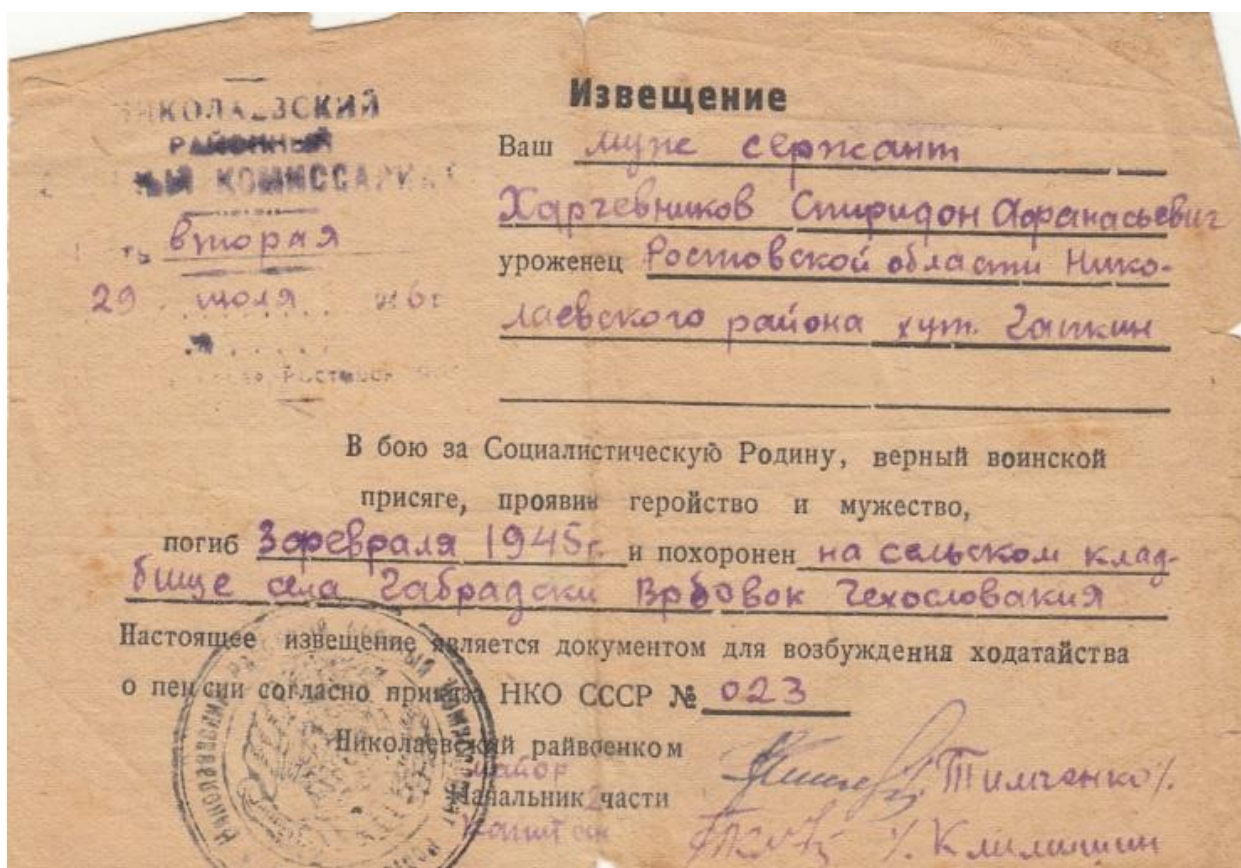 НИКОЛАЕВСКИЙ
РАЙОННЫЙ
КОМИССАРИАТ
вторая
29 июля
Извещение
Ваш муж сержант
Харчевников Спиридон Афанасьевич
уроженец Ростовской области Нико-
лаевского района хут.
В бою за Социалистическую Родину, верный воинской
присяге, проявив геройство и мужество,
погиб 3 февраля 1945г. и похоронен на сельском клад-
бище села Габрадски Врбовок Чехословакия
Настоящее извещение является документом для возбуждения ходатайства
о пенсии согласно приказа НКО СССР № 023
Николаевский райвоенком
майор
Тимченко/.
Начальник 2 части
Капитан